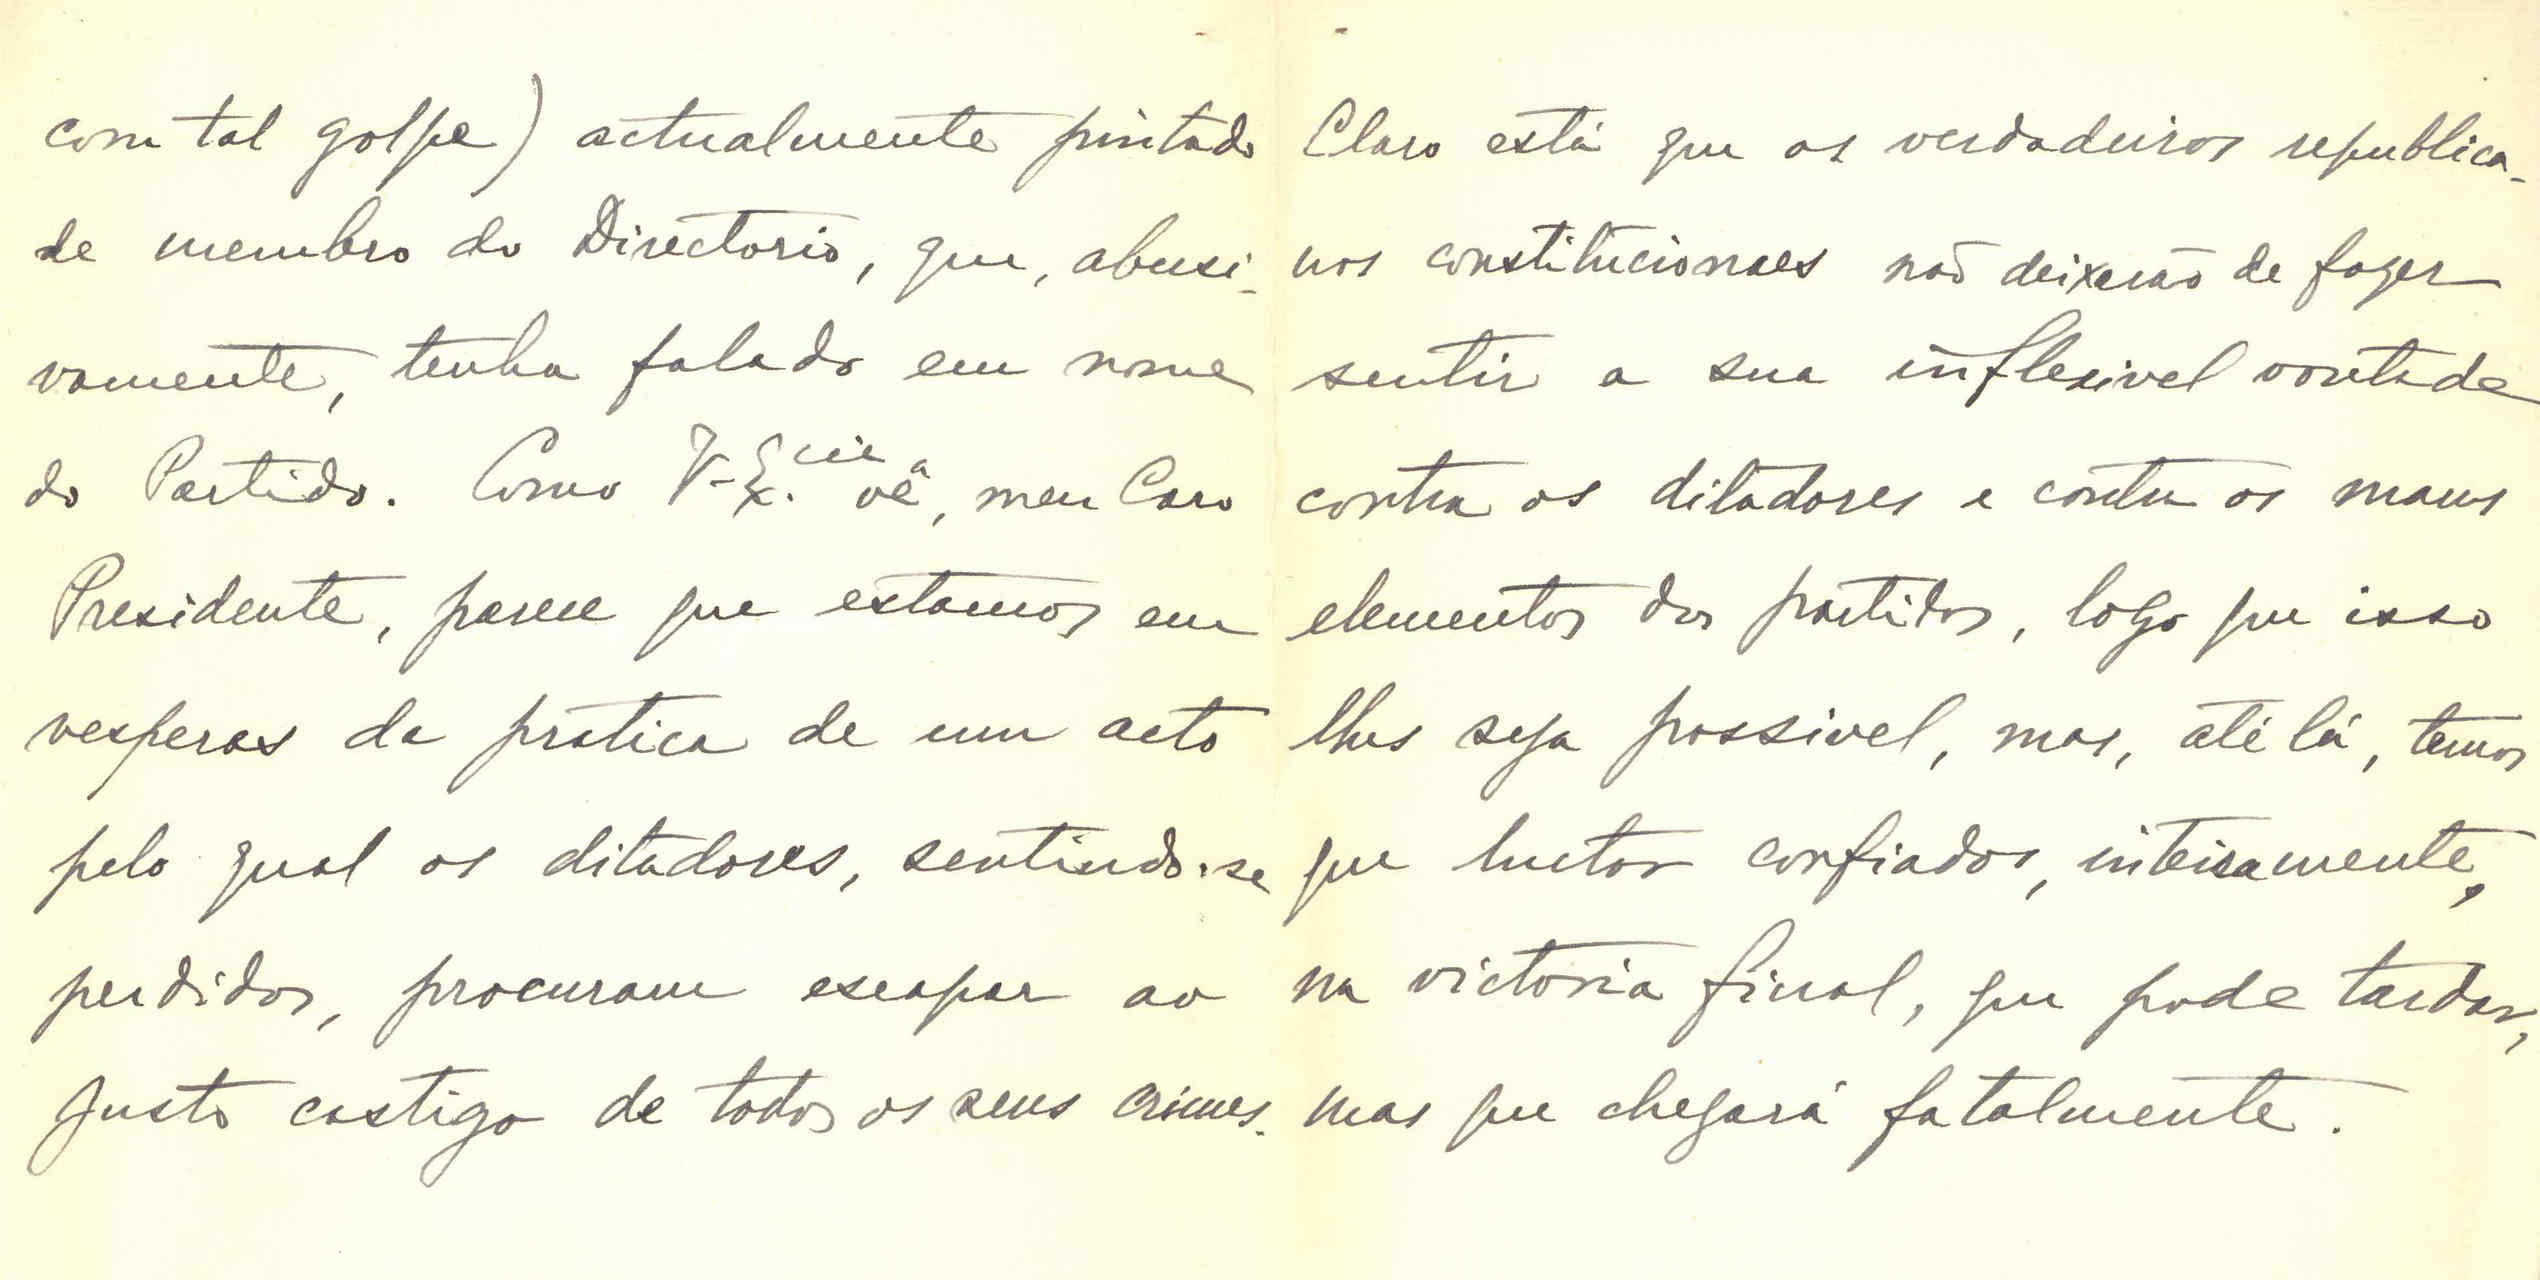 com tal golpe) actualmente pintado
de membro do Directorio, que, abusi-
vamente, tenha falado em nome
do Partido. Como V. Ex.cia vê, meu Caro
Presidente, parece que estamos em
vesperas da pratica de um acto
pelo qual os ditadores, sentindo-se
perdidos, procuram escapar ao
justo castigo de todos os seus crimes.
Claro está que os verdadeiros republica-
nos constitucionaes não deixarão de fazer
sentir a sua inflexivel vontade
contra os ditadores e contra os maus
elementos dos partidos, logo que isso
lhes seja possivel, mas, até lá, temos
que luctar confiados, inteiramente,
na victoria final, que pode tardar,
mas que chegará fatalmente.